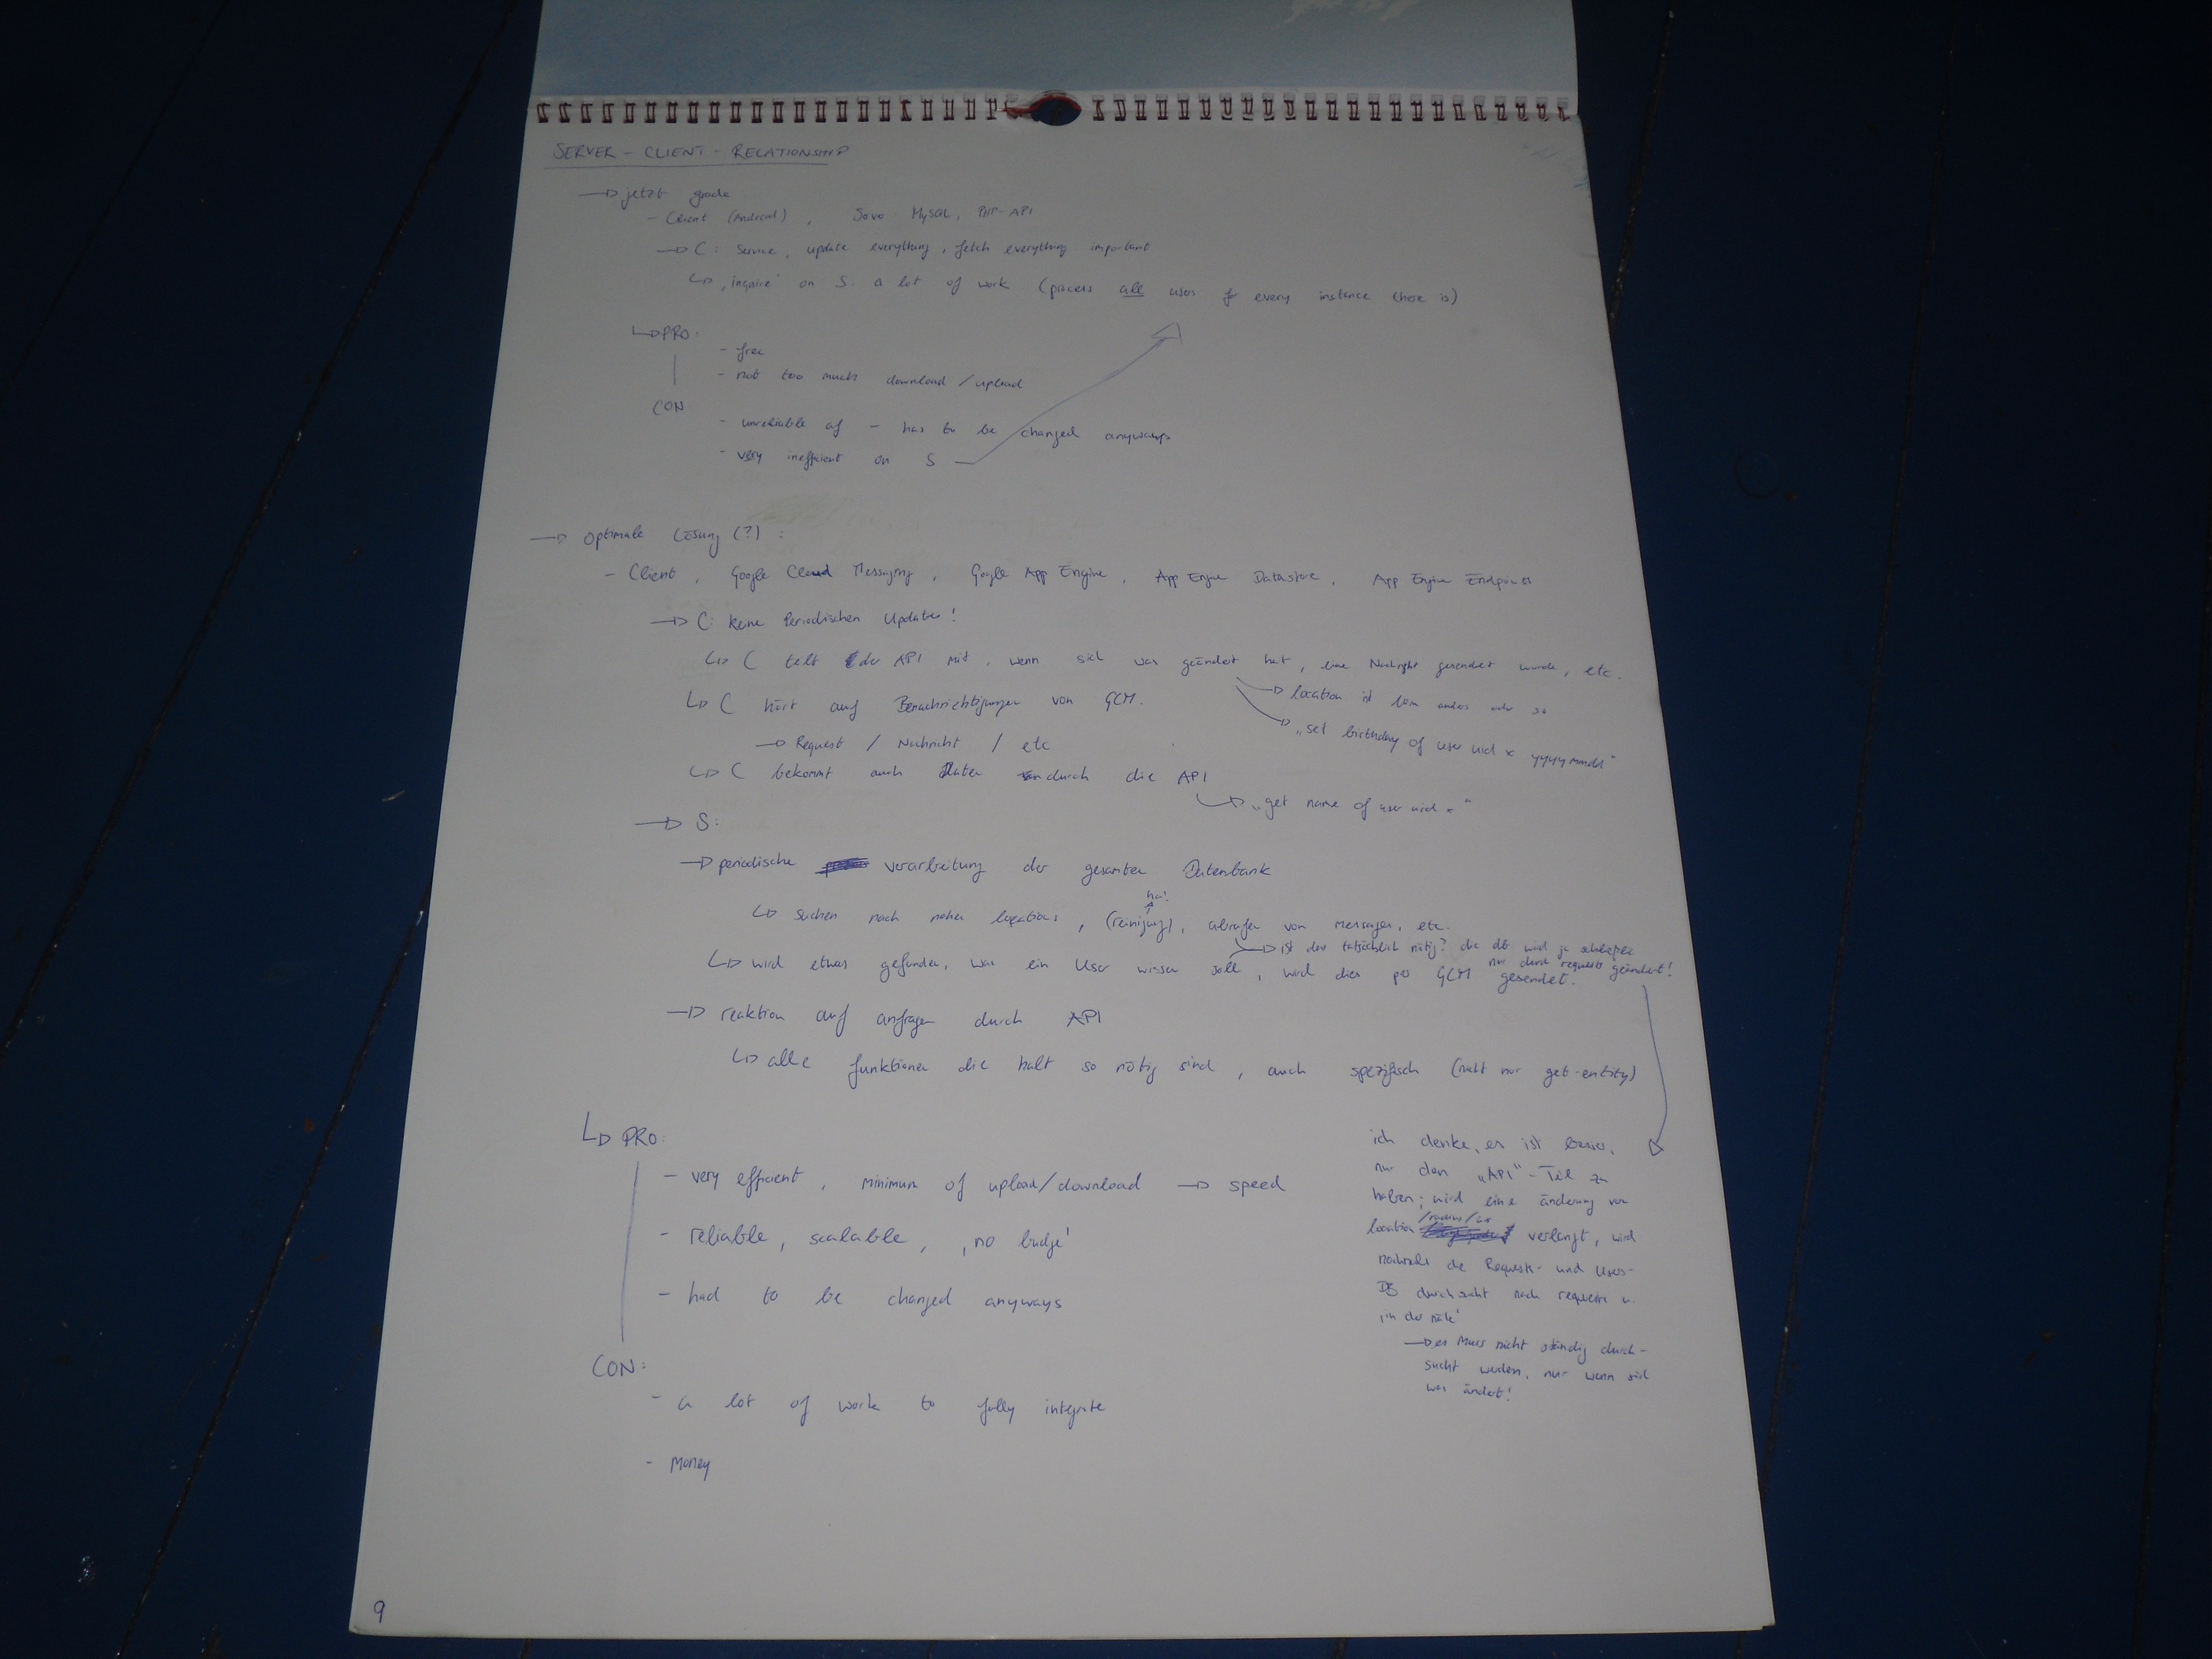 SERVER - CLIENT - RELATIONSHIP
→ jetzt grade
- Client (Android), MySQL, PHP-API
→ C: Service, update everything, fetch everything important
↳ on S. a lot of work (process all users for every instance there is)
↳ PRO:
- free
- not too much download/upload
CON
- unreliable af - has to be changed anyways
- very inefficient on S
→ Optimale Lösung (?) :
- Client, Google Cloud Messaging, Google App Engine, App Engine Datastore, App Engine Endpoints
→ C: keine Periodischen Updates!
↳ C teilt der API mit, wenn sich was geändert hat, eine Nachricht gesendet wurde, etc.
→ location ist anders oder so
→ „set birthday of user uid x yyyymmdd"
↳ C hört auf Benachrichtigungen von GCM.
→ Request / Nachricht / etc
↳ C bekommt auch Daten durch die API
↳ „get name of user uid x"
→ S:
→ periodische verarbeitung der gesamten Datenbank
↳ suchen nach nahen locations, (reinigung), abrufen von messages, etc.
ha!
→ ist das tatsächlich nötig? die db wird ja schließlich
nur durch requests geändert!
↳ wird etwas gefunden, was ein User wissen soll, wird dies per GCM gesendet.
→ reaktion auf anfragen durch API
↳ alle funktionen die halt so nötig sind, auch spezifisch (nicht nur get-entity)
↳ PRO:
- very efficient, minimum of upload/download → speed
- reliable, scalable, ‚no budge'
- had to be changed anyways
CON:
- a lot of work to fully integrate
- Money
ich denke, es ist besser,
nur den „API"-Teil zu
haben; wird eine änderung von
location /radius/ verlangt, wird
die Requests- und Users-
DB durchsucht nach requests u.
‚in der nähe'
→ es muss nicht ständig durch-
sucht werden, nur wenn sich
was ändert!
9